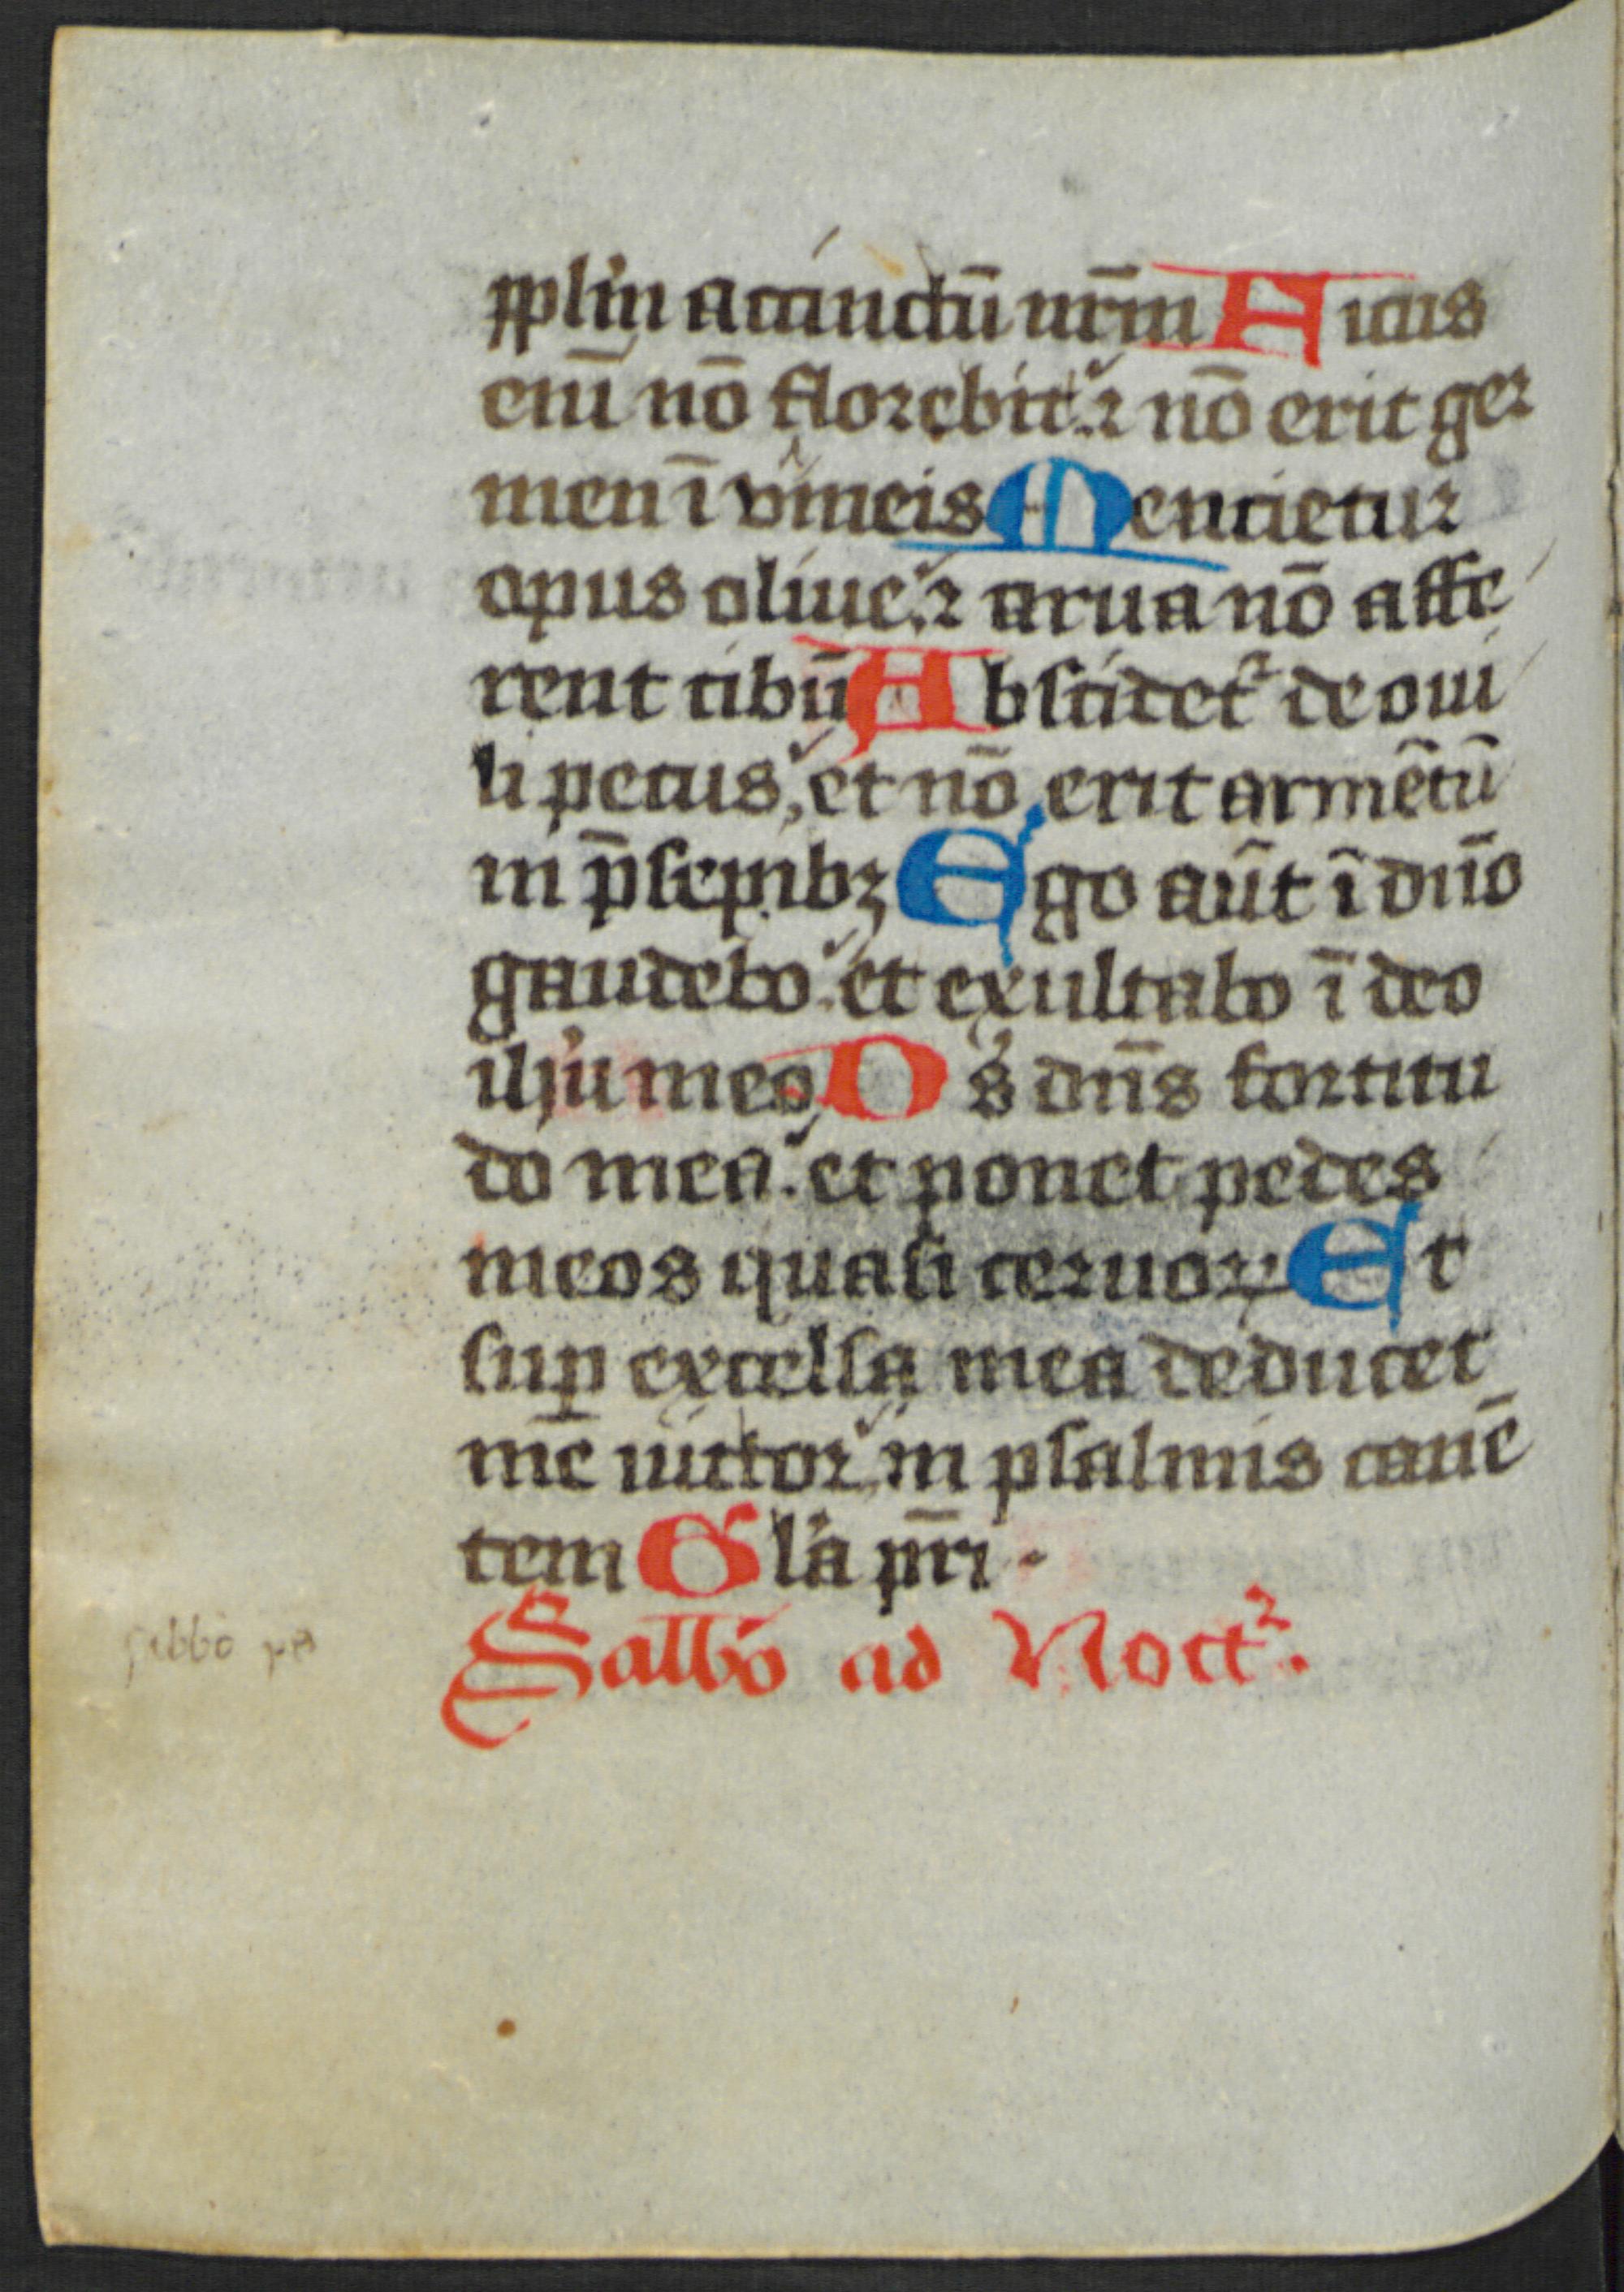 pplm̄ accinctū nr̄m Ficus
eni̅ nō florebit ⁊ nō erit ger
men ī vineis Mencietur
opus oliue ⁊ arua nō affe
rent cibū Abscidet᷑ de oui
li pecus, et nō erit armētū
in p̄sepibꝫ Ego aūt ī dn̄o
gaudebo. et exultabo ī deo
ih̄u meo Ds̄ dn̄s fortitu
do mea. et ponet pedes
meos quasi ceruoꝝ Et
suꝑ excelsa mea deducet
me uictor in psalmis canē
tem Gl̄a pr̄i.
Sabb̄o ad Noct᷑.
sabbo